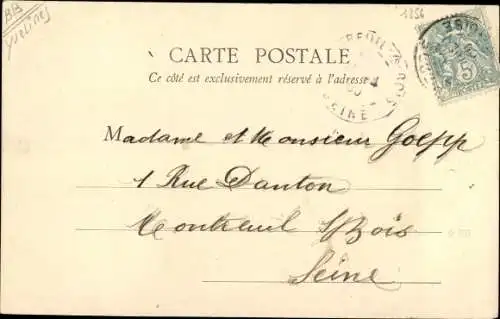 BB
Yvelines
1256
CARTE POSTALE
Ce côté est exclusivement réservé à l'adresse
SEINE
5
Madame et Monsieur Goepp
1 Rue Danton
Montreuil S/ Bois
Seine